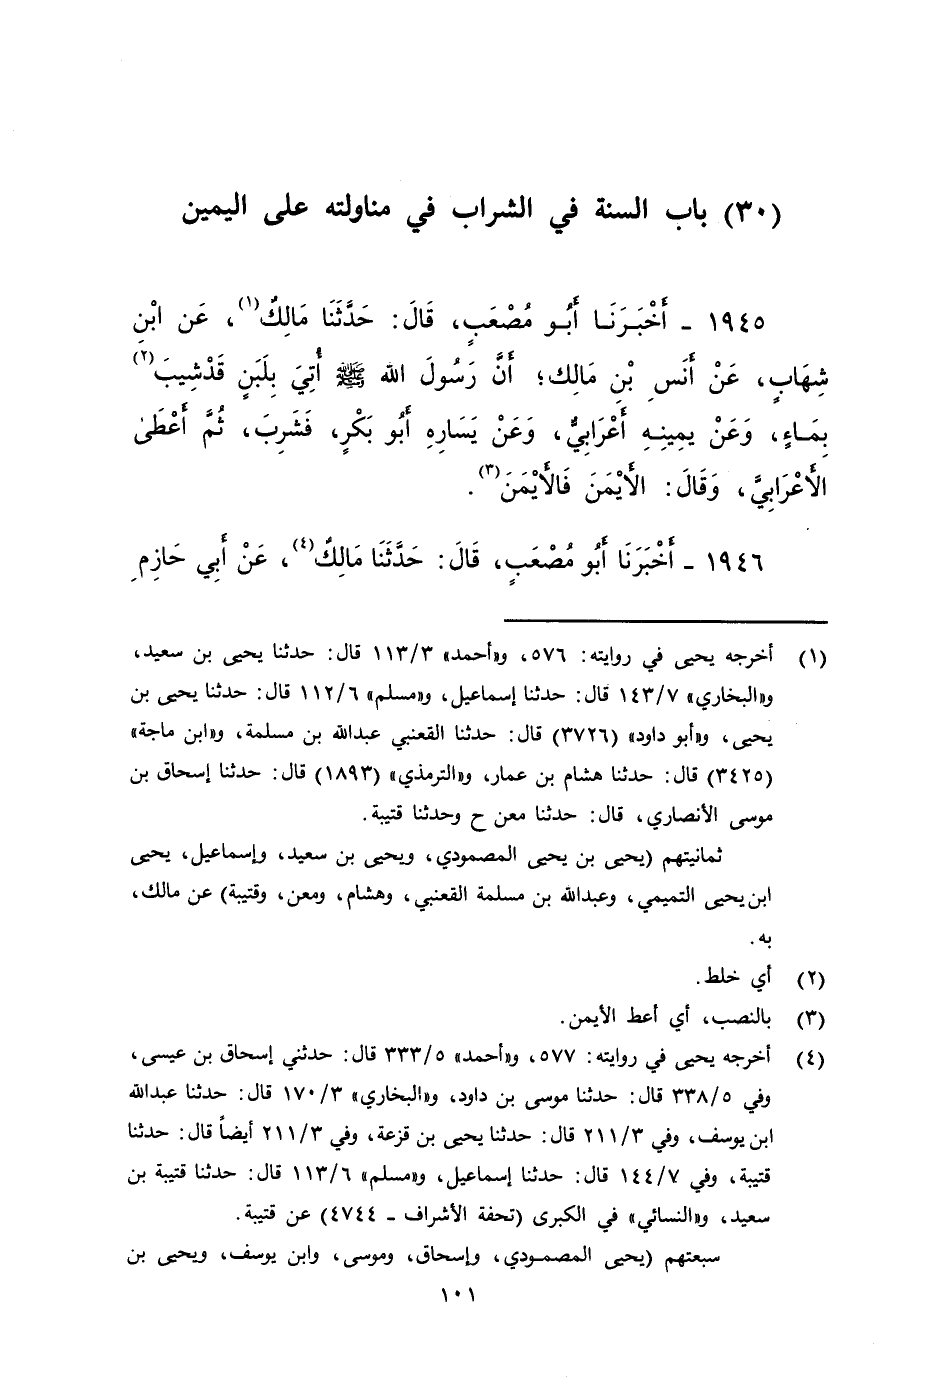 (٣٠) باب السنة في الشراب في مناولته على اليمين
١٩٤٥ ـ أَخْبَـرَنَـا أَبُـو مُصْعَبٍ، قَالَ: حَدَّثَنَا مَالِكٌ(١)، عَن ابْنِ
شِهَابٍ، عَنْ أَنَسِ بْنِ مَالِك؛ أَنَّ رَسُولَ الله ﷺ أُتِيَ بِلَبَنٍ قَدْشِيبَ(٢)
بِمَـاءٍ، وَعَنْ يمِينِـهِ أَعْرَابِيٌّ، وَعَنْ يَسَارِهِ أَبُو بَكْرٍ، فَشَرِبَ، ثُمَّ أَعْطَىٰ
الأَعْرَابِيَّ، وَقَالَ: الأَيْمَنَ فَالأَيْمَنَ(٣).
١٩٤٦ ـ أَخْبَرَنَا أَبُو مُصْعَبٍ، قَالَ: حَدَّثَنَا مَالِكٌ(٤)، عَنْ أَبِي حَازِمِ
(١) أخرجه يحيى في روايته: ٥٧٦، و«أحمد» ١١٣/٣ قال: حدثنا يحيى بن سعيد،
و«البخاري» ١٤٣/٧ قال: حدثنا إسماعيل، و«مسلم» ١١٢/٦ قال: حدثنا يحيى بن
يحيى، و«أبو داود» (٣٧٢٦) قال: حدثنا القعنبي عبدالله بن مسلمة، و«ابن ماجة»
(٣٤٢٥) قال: حدثنا هشام بن عمار، و«الترمذي» (١٨٩٣) قال: حدثنا إسحاق بن
موسى الأنصاري، قال: حدثنا معن ح وحدثنا قتيبة.
ثمانيتهم (يحيى بن يحيى المصمودي، ويحيى بن سعيد، وإسماعيل، يحيى
ابن يحيى التميمي، وعبدالله بن مسلمة القعنبي، وهشام، ومعن، وقتيبة) عن مالك،
به.
(٢) أي خلط.
(٣) بالنصب، أي أعط الأيمن.
(٤) أخرجه يحيى في روايته: ٥٧٧، و«أحمد» ٣٣٣/٥ قال: حدثني إسحاق بن عيسى،
وفي ٣٣٨/٥ قال: حدثنا موسى بن داود، و«البخاري» ١٧٠/٣ قال: حدثنا عبدالله
ابن يوسف، وفي ٢١١/٣ قال: حدثنا يحيى بن قزعة، وفي ٢١١/٣ أيضاً قال: حدثنا
قتيبة، وفي ١٤٤/٧ قال: حدثنا إسماعيل، و«مسلم» ١١٣/٦ قال: حدثنا قتيبة بن
سعيد، و«النسائي» في الكبرى (تحفة الأشراف ـ ٤٧٤٤) عن قتيبة.
سبعتهم (يحيى المصمـودي، وإسحاق، وموسى، وابن يوسف، ويحيى بن
١٠١